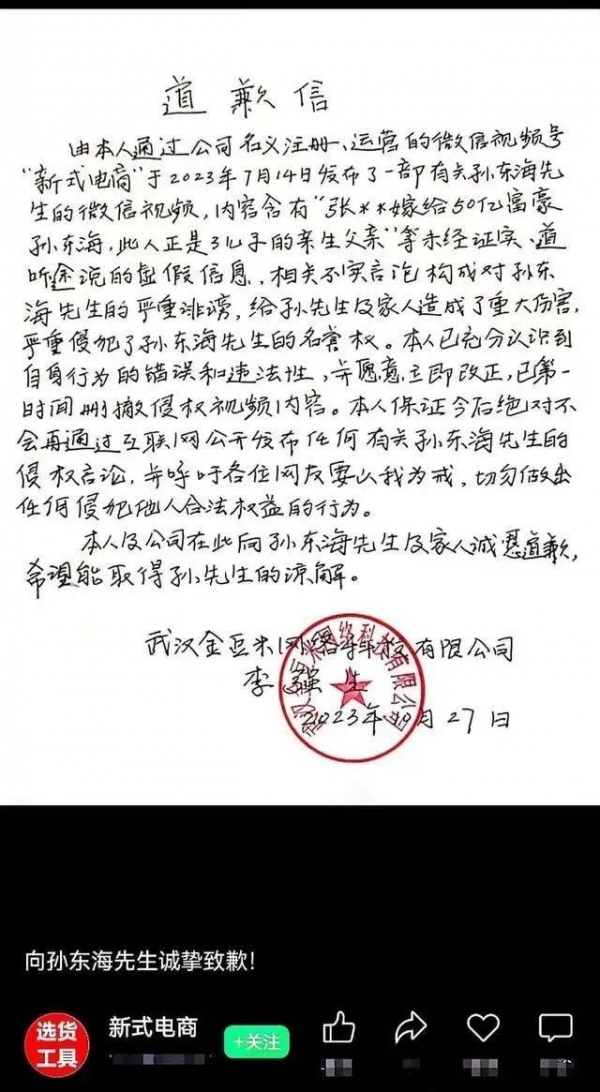 道歉信
由本人通过公司名义注册、运营的微信视频号
"新式电商"于2023年7月14日发布了一部有关孙东海先
生的微信视频,内容含有"张**嫁给50亿富豪
孙东海,此人正是3儿子的亲生父亲"等未经证实、道
听途说的虚假信息,相关不实言论构成对孙东
海先生的严重诽谤,给孙先生及家人造成了重大伤害,
严重侵犯了孙东海先生的名誉权。本人已充分认识到
自身行为的错误和违法性,并愿意立即改正,已第一
时间删撤侵权视频内容。本人保证今后绝对不
会再通过互联网公开发布任何有关孙东海先生的
侵权言论,并呼吁各位网友要以我为戒,切勿做出
任何侵犯他人合法权益的行为。
本人及公司在此向孙东海先生及家人诚恳道歉,
希望能取得孙先生的谅解。
武汉金豆米网络科技有限公司
李强生
2023年 月27日
向孙东海先生诚挚致歉!
选货
工具
新式电商
+关注